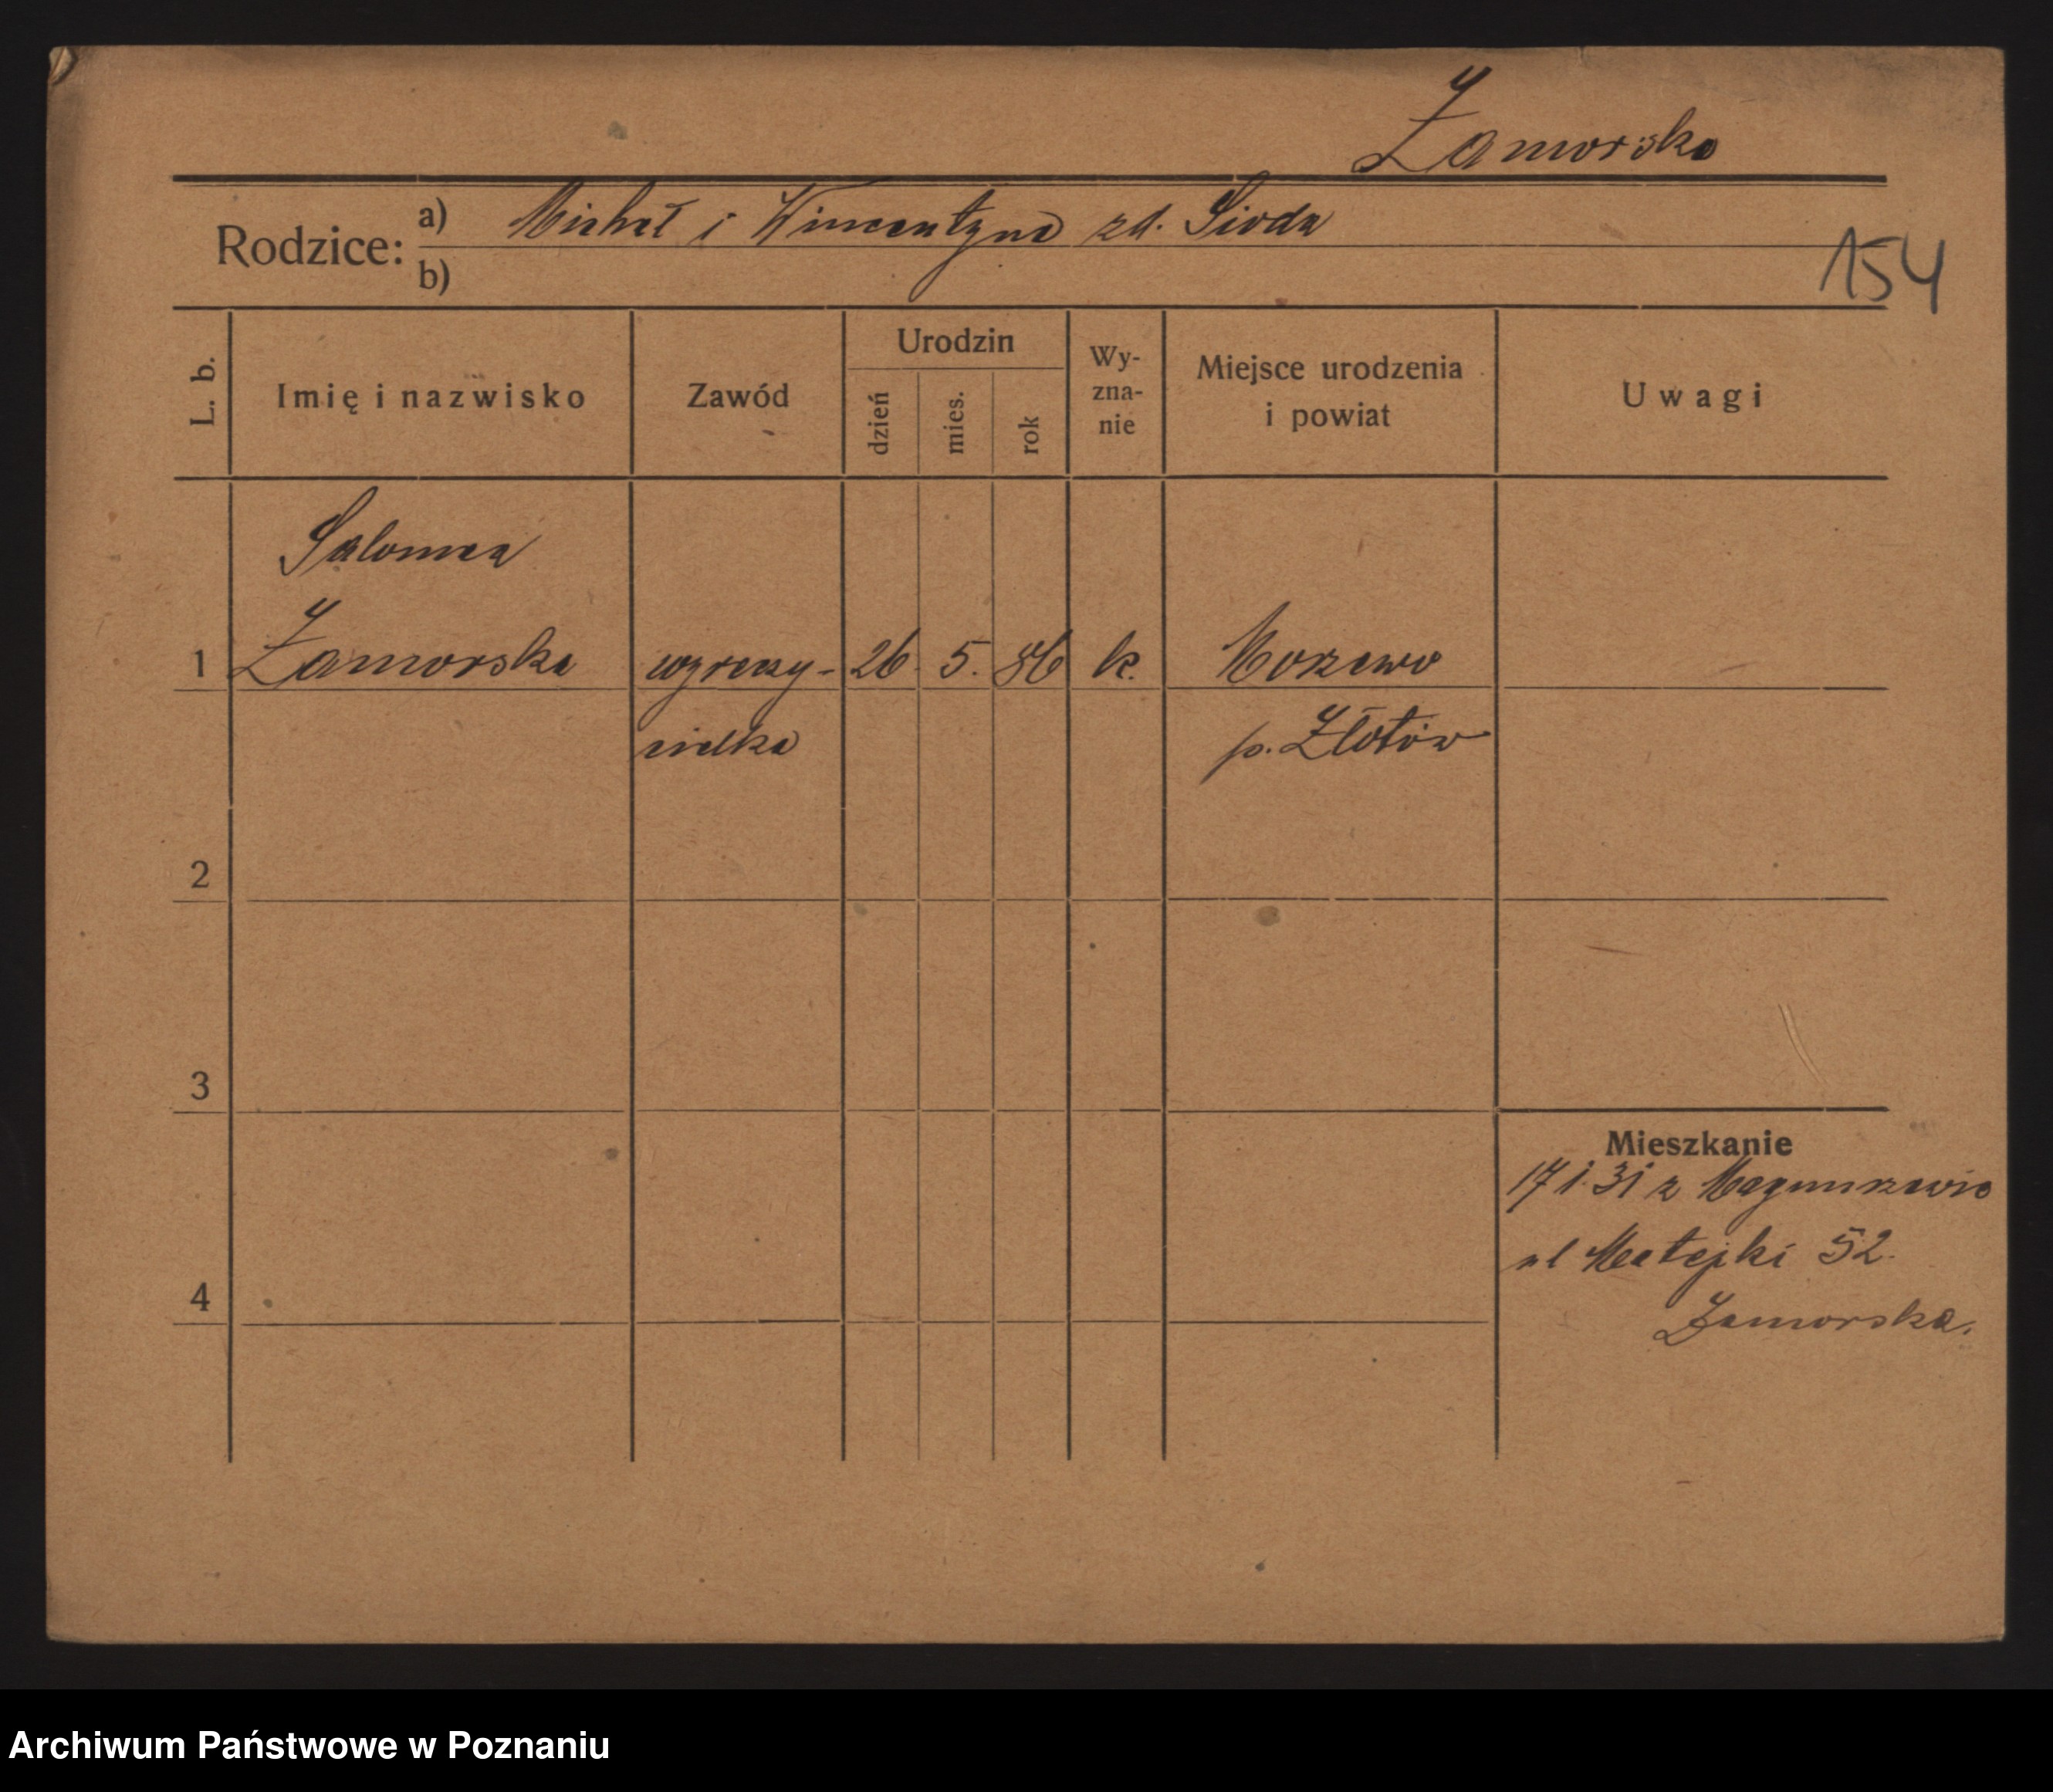 Zamorska
Rodzice:
a) Michał i Wincentyna zd. Sioda
b)
154
L. b.
Imię i nazwisko
Zawód
Urodzin
dzień
mies.
rok
Wy-
zna-
nie
Miejsce urodzenia
i powiat
Uwagi
Salomea
1 Zamorska 26. 5. 86 k. Morzewo
cielka p. Złotów
2
3
Mieszkanie
17 1. 31 z
ul Matejki 52.
4
Zamorska.
Archiwum Państwowe w Poznaniu